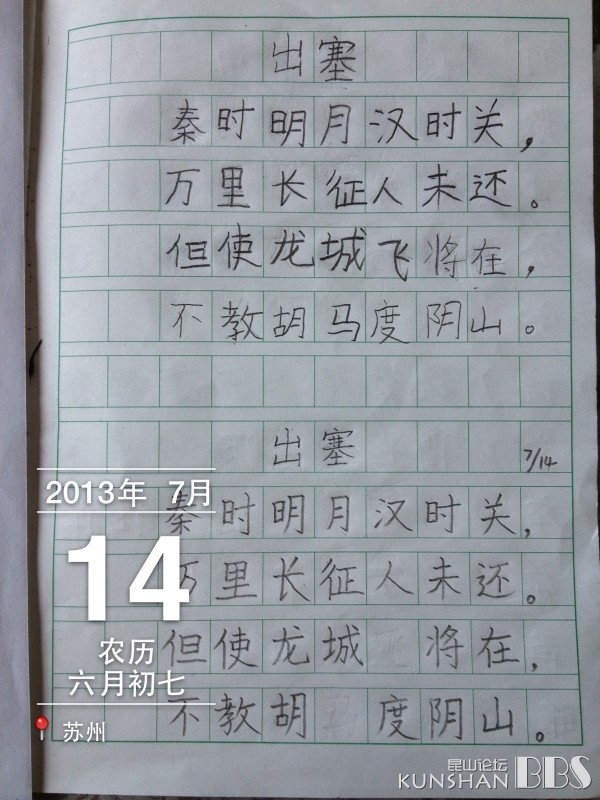 出塞
秦时明月汉时关，
万里长征人未还。
但使龙城飞将在，
不教胡马度阴山。
出塞
7/14
秦时明月汉时关，
万里长征人未还。
但使龙城 将在，
不教胡 度阴山。
2013年 7月
14
农历
六月初七
苏州
昆山论坛
KUNSHAN BBS